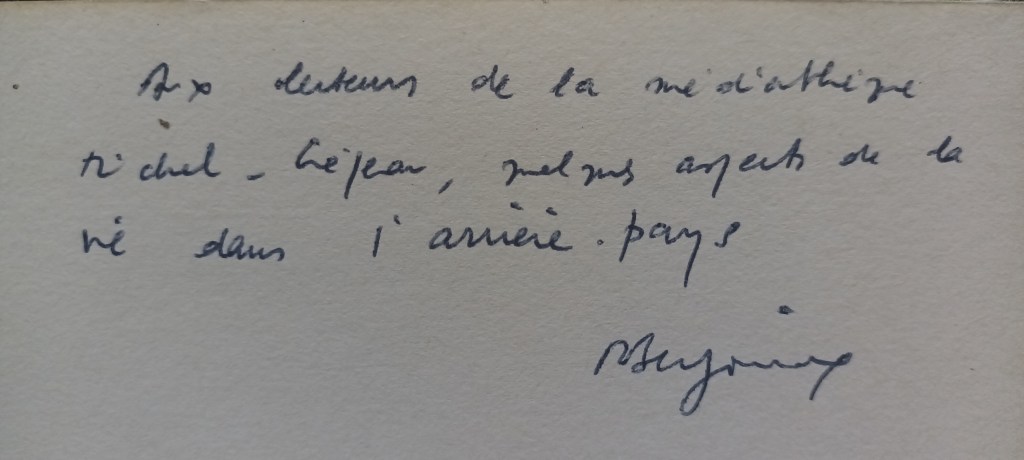 Aux lecteurs de la médiathèque
Michel-Créjeau, quelques aspects de la
vie dans l'arrière-pays
PBergounioux